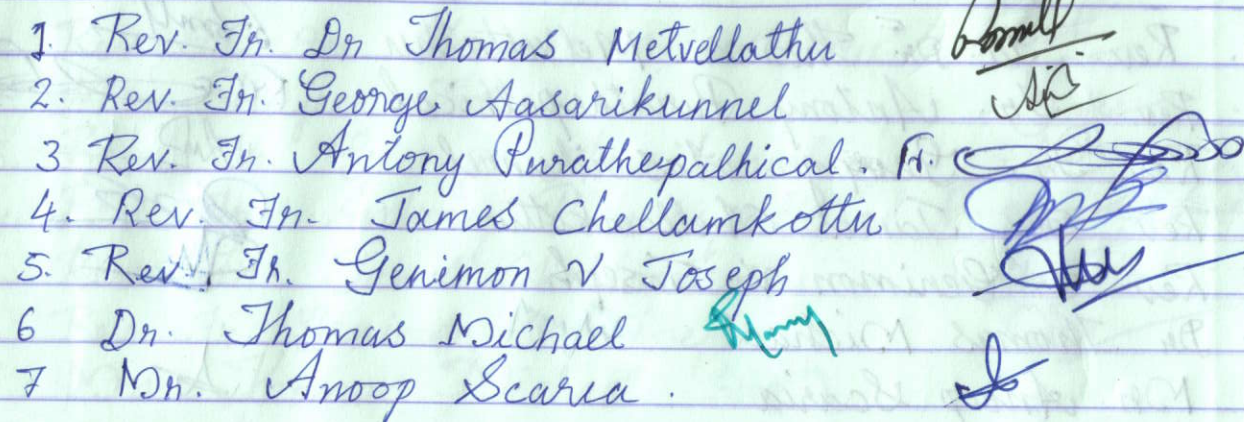 1. Rev. Fr. Dr Thomas Metvellathu
2. Rev. Fr. George Aasarikunnel
3 Rev. Fr. Antony Purathepalhical. Fr.
4. Rev. Fr. James Chellamkottu
5. Rev. Fr. Genimon V Joseph
6 Dr. Thomas Michael
7 Mr. Anoop Scaria.